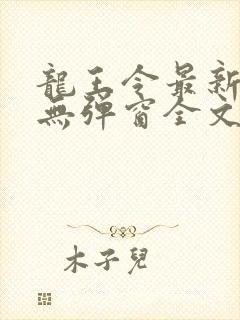 龍王令最新
無彈窗全文
木子兒